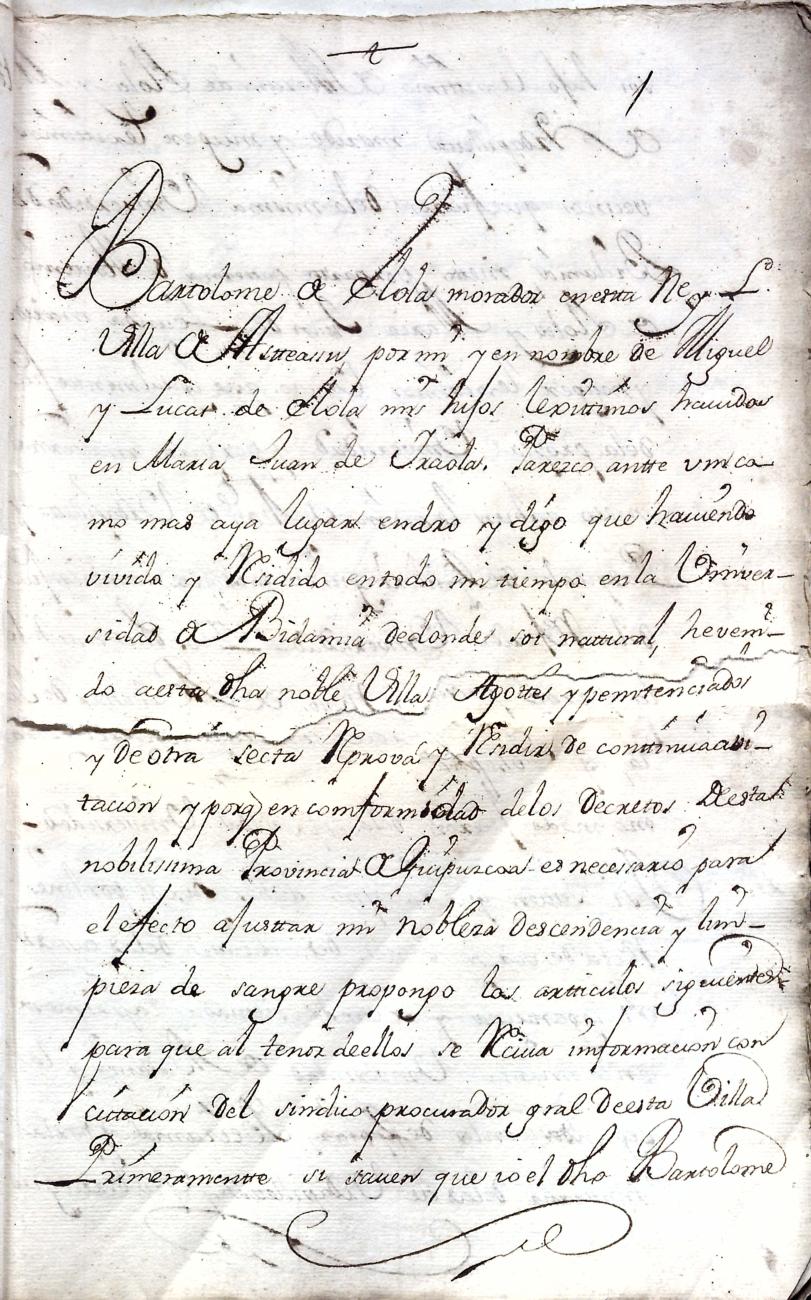 1
Bartolome de Olola morador enesta N. y L.
Villa de Asteasu por mi y en nombre de Miguel
y Lucas de Olola mis hijos lexittimos havidos
en Maria Juan de Yraola. Parezco antte vm co-
mo mas aya lugar endro y digo que haviendo
vivido y Residido entodo mi tiempo en la Univer-
sidad de Bidania dedonde soi nattural, he veni-
do aesta dha noble Villa Agottes y penitenciados
y De otra secta Reprova y Residir de conttinua avi-
tacion y porq en comformidad delos Decretos Desta
nobilissima Provincia de Guipuzcoa es necessario para
el efecto ajusttar mi nobleza descendencia y lim-
pieza de sangre propongo los artticulos siguientes
para que al tenor deellos se Reciva imformacion con
cittacion del sindico procurador gral deesta Villa
Primeramentte si saven que io el dho Bartolome